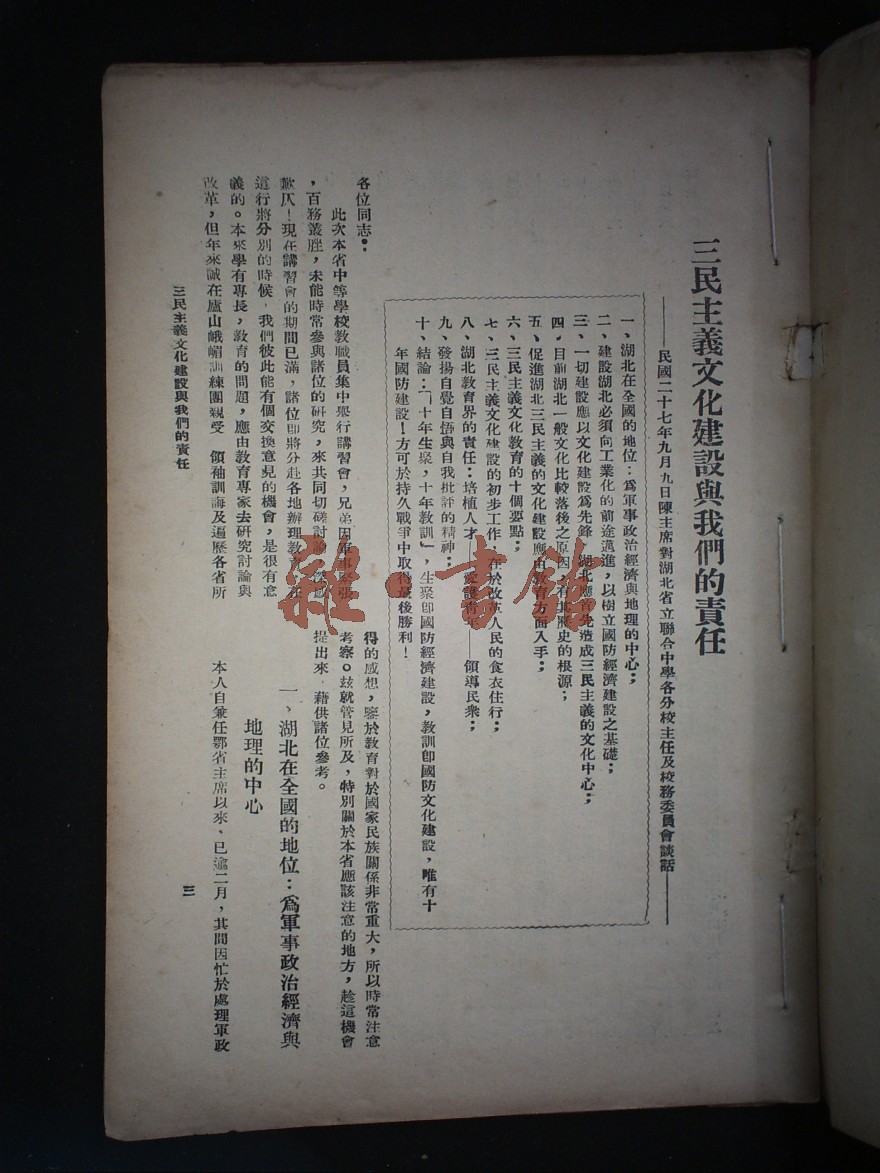 三民主義文化建設與我們的責任
——民國二十七年九月九日陳主席對湖北省立聯合中學各分校主任及校務委員會談話——
一、湖北在全國的地位：爲軍事政治經濟與地理的中心；
二、建設湖北必須向工業化的前途邁進，以樹立國防經濟建設之基礎；
三、一切建設應以文化建設爲先鋒，湖北應首先造成三民主義的文化中心；
四、目前湖北一般文化比較落後之原因，有其歷史的根源；
五、促進湖北三民主義的文化建設應由教育方面入手；
六、三民主義文化教育的十個要點；
七、三民主義文化建設的初步工作，在於改革人民的食衣住行；
八、湖北教育界的責任：培植人才——愛護青年——領導民衆；
九、發揚自覺自悟與自我批評的精神；
十、結論：「十年生聚，十年教訓」，生聚卽國防經濟建設，教訓卽國防文化建設，唯有十
年國防建設！方可於持久戰爭中取得最後勝利！
各位同志：
此次本省中等學校教職員集中舉行講習會，兄弟因軍事緊張
，百務叢脞，未能時常參與諸位的研究，來共同切磋討論，深以
歉仄！現在講習會的期間已滿，諸位卽將分赴各地辦理教育，在
這行將分別的時候，我們彼此能有個交換意見的機會，是很有意
義的。本來學有專長，教育的問題，應由教育專家去研究討論與
改革，但年來誠在廬山峨嵋訓練團親受　領袖訓誨及遍歷各省所
得的感想，鑒於教育對於國家民族關係非常重大，所以時常注意
考察。玆就管見所及，特別關於本省應該注意的地方，趁這機會
提出來，藉供諸位參考。
一、湖北在全國的地位：爲軍事政治經濟與
地理的中心
本人自兼任鄂省主席以來，已逾二月，其間因忙於處理軍政
三民主義文化建設與我們的責任
三
雜·書館